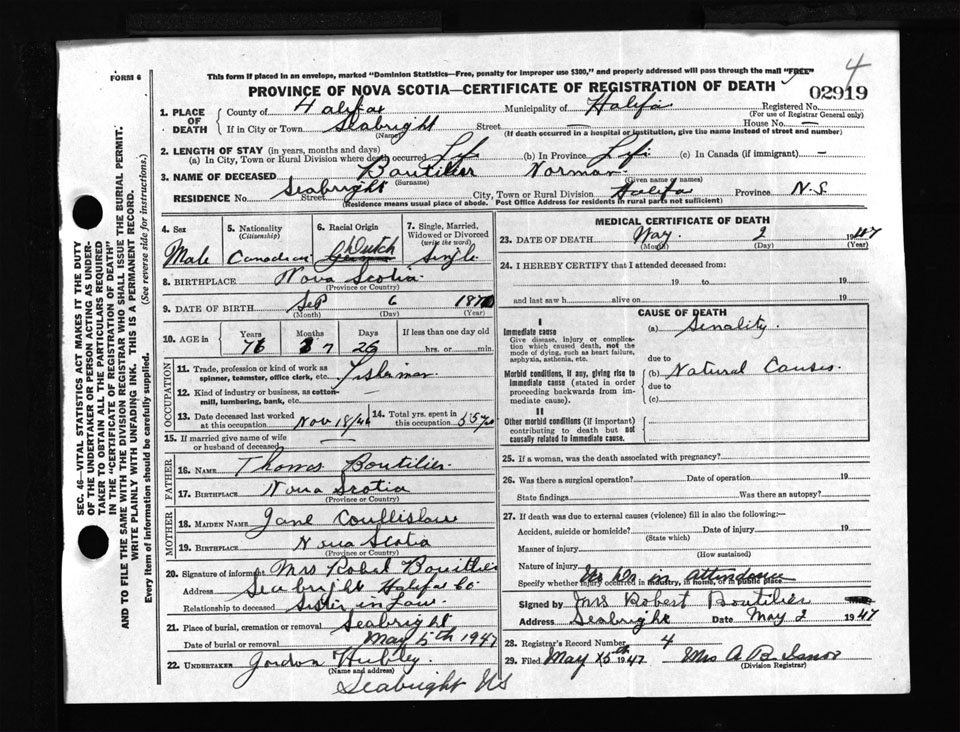 4
This form if placed in an envelope, marked "Dominion Statistics—Free, penalty for improper use $300," and properly addressed will pass through the mail "FREE"
FORM 6
PROVINCE OF NOVA SCOTIA—CERTIFICATE OF REGISTRATION OF DEATH 02919
1. PLACE OF DEATH County of Halifax Municipality of Halifax Registered No.
(For use of Registrar General only)
If in City or Town Seabright Street — House No. —
(Name) (If death occurred in a hospital or institution, give the name instead of street and number)
2. LENGTH OF STAY (in years, months and days)
(a) In City, Town or Rural Division where death occurred Life (b) In Province Life (c) In Canada (if immigrant) —
3. NAME OF DECEASED Boutilier Norman
(Surname) (Given name or names)
RESIDENCE No. Seabright Street City, Town or Rural Division Halifax Province N.S
(Residence means usual place of abode. Post Office Address for residents in rural parts not sufficient)
4. Sex 5. Nationality 6. Racial Origin 7. Single, Married,
(Citizenship) Widowed or Divorced
(write the word)
Male Canadian German Dutch Single
8. BIRTHPLACE Nova Scotia
(Province or Country)
9. DATE OF BIRTH Sep 6 1870
(Month) (Day) (Year)
10. AGE in Years Months Days If less than one day old
76 7 26 hrs. or min.
OCCUPATION
11. Trade, profession or kind of work as
spinner, teamster, office clerk, etc. Fisherman
12. Kind of industry or business, as cotton-
mill, lumbering, bank, etc.
13. Date deceased last worked
at this occupation Nov 18/46 14. Total yrs. spent in
this occupation 55 yrs
15. If married give name of wife
or husband of deceased —
FATHER
16. NAME Thomas Boutilier
17. BIRTHPLACE Nova Scotia
(Province or Country)
MOTHER
18. MAIDEN NAME Jane
19. BIRTHPLACE Nova Scotia
(Province or Country)
20. Signature of informant Mrs Robert Boutilier
Address Seabright Halifax Co
Relationship to deceased Sister in Law
21. Place of burial, cremation or removal Seabright
Date of burial or removal May 5th 1947
22. UNDERTAKER Gordon Hubley
(Name and address)
Seabright NS
MEDICAL CERTIFICATE OF DEATH
23. DATE OF DEATH May 2 1947
(Month) (Day) (Year)
24. I HEREBY CERTIFY that I attended deceased from:
19 to 19
and last saw h alive on 19
CAUSE OF DEATH
I
Immediate cause (a) Senality.
Give disease, injury or complica-
tion which caused death, not the
mode of dying, such as heart failure,
asphyxia, asthenia, etc.
due to
Morbid conditions, if any, giving rise to (b) Natural Causes.
immediate cause (stated in order due to
proceeding backwards from im-
mediate cause). (c)
II
Other morbid conditions (if important)
contributing to death but not
causally related to immediate cause.
25. If a woman, was the death associated with pregnancy?
26. Was there a surgical operation? Date of operation 19
State findings Was there an autopsy?
27. If death was due to external causes (violence) fill in also the following:—
Accident, suicide or homicide? Date of injury 19
(State which)
Manner of injury
(How sustained)
Nature of injury
No Dr in attendance
Specify whether injury occurred in industry, in home, or in public place
Signed by Mrs Robert Boutilier
Address Seabright Date May 2 1947
28. Registrar's Record Number 4
29. Filed May 15th 1947 Mrs A B
(Division Registrar)
SEC. 46—VITAL STATISTICS ACT MAKES IT THE DUTY
OF THE UNDERTAKER OR PERSON ACTING AS UNDER-
TAKER TO OBTAIN ALL THE PARTICULARS REQUIRED
IN THE "CERTIFICATE OF REGISTRATION OF DEATH"
AND TO FILE THE SAME WITH THE DIVISION REGISTRAR WHO SHALL ISSUE THE BURIAL PERMIT.
WRITE PLAINLY WITH UNFADING INK. THIS IS A PERMANENT RECORD.
Every item of information should be carefully supplied. (See reverse side for instructions.)